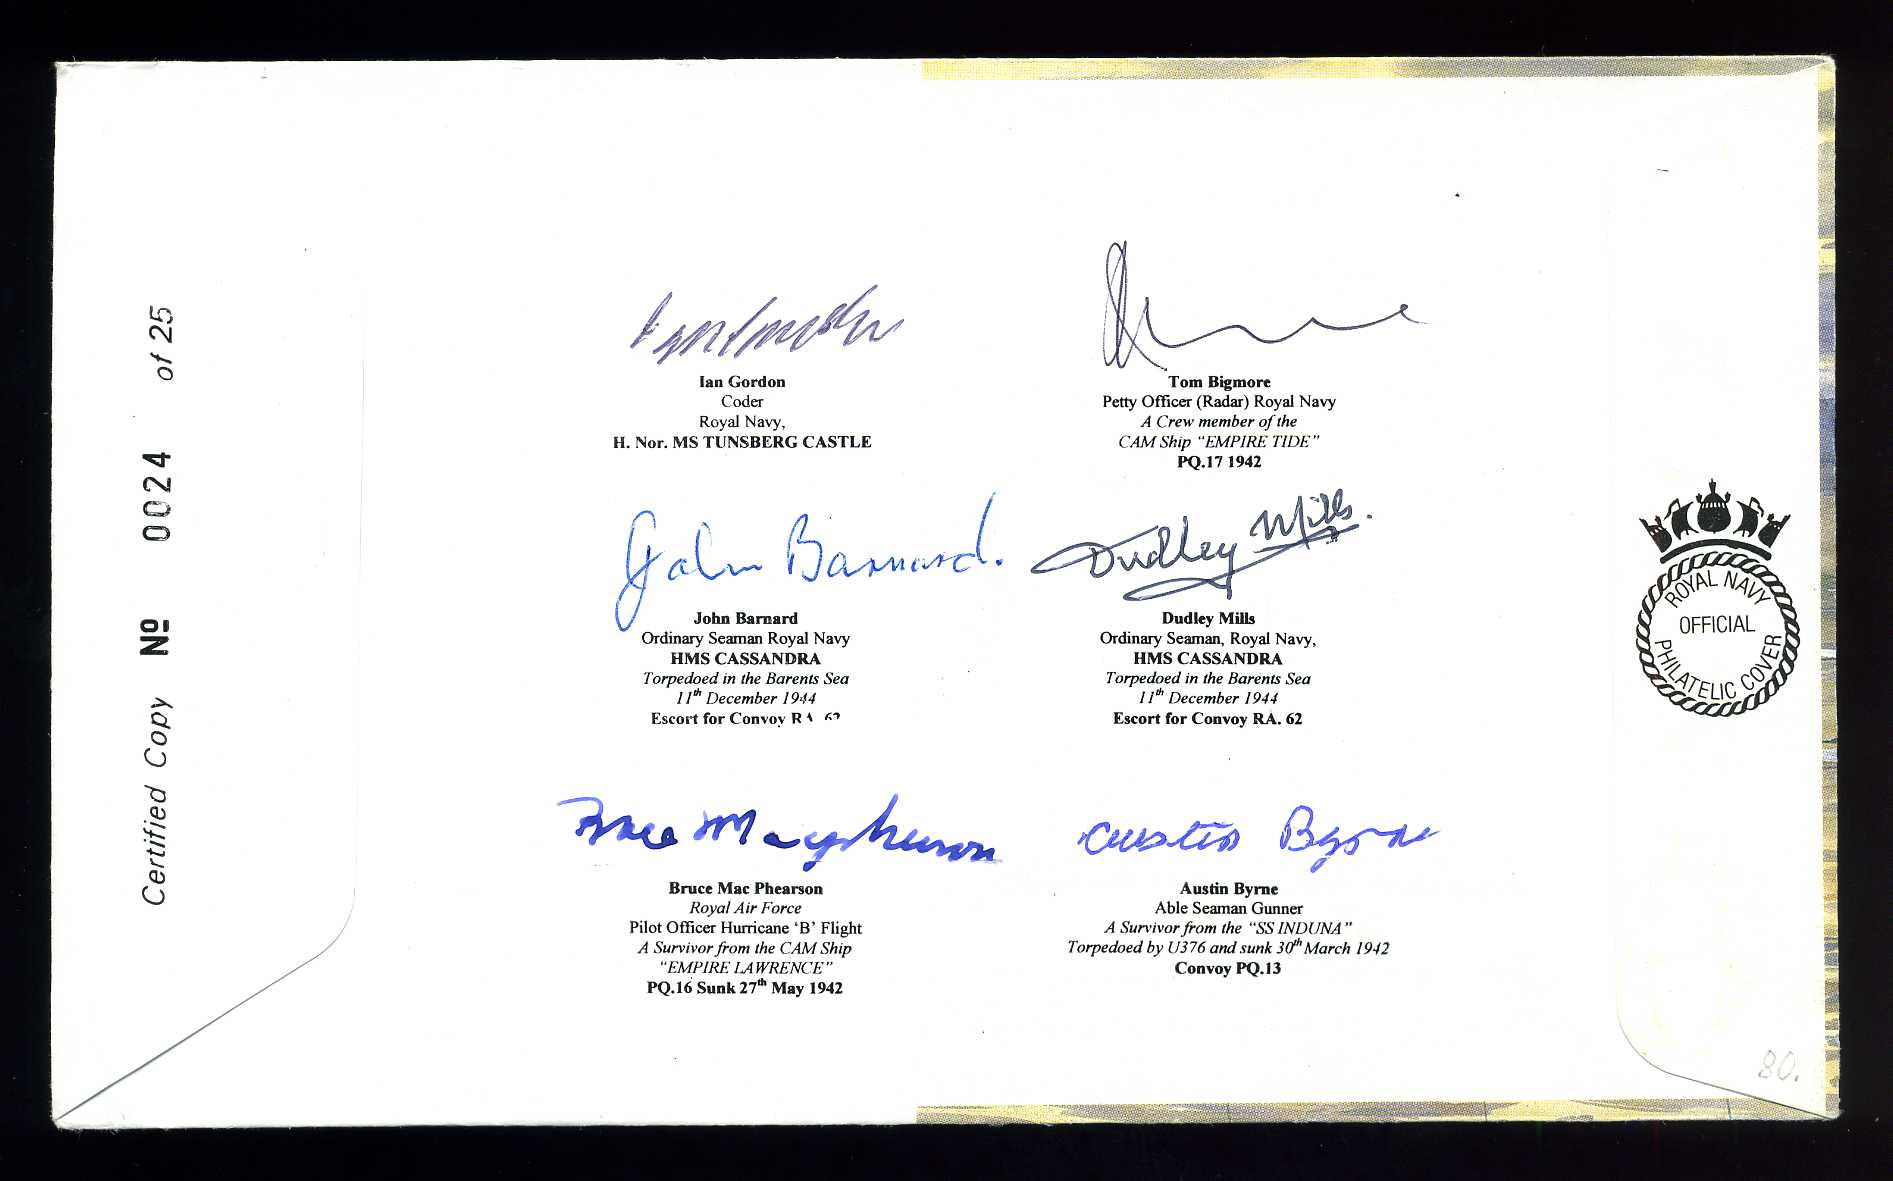 Certified Copy Nº 0024 of 25
Ian Gordon
Coder
Royal Navy,
H. Nor. MS TUNSBERG CASTLE
Tom Bigmore
Petty Officer (Radar) Royal Navy
A Crew member of the
CAM Ship "EMPIRE TIDE"
PQ.17 1942
John Barnard.
John Barnard
Ordinary Seaman Royal Navy
HMS CASSANDRA
Torpedoed in the Barents Sea
11th December 1944
Escort for Convoy
Dudley Mills.
Dudley Mills
Ordinary Seaman, Royal Navy,
HMS CASSANDRA
Torpedoed in the Barents Sea
11th December 1944
Escort for Convoy RA. 62
Bruce Macphearson
Bruce Mac Phearson
Royal Air Force
Pilot Officer Hurricane 'B' Flight
A Survivor from the CAM Ship
"EMPIRE LAWRENCE"
PQ.16 Sunk 27th May 1942
Austin Byrne
Austin Byrne
Able Seaman Gunner
A Survivor from the "SS INDUNA"
Torpedoed by U376 and sunk 30th March 1942
Convoy PQ.13
ROYAL NAVY
OFFICIAL
PHILATELIC COVER
80.